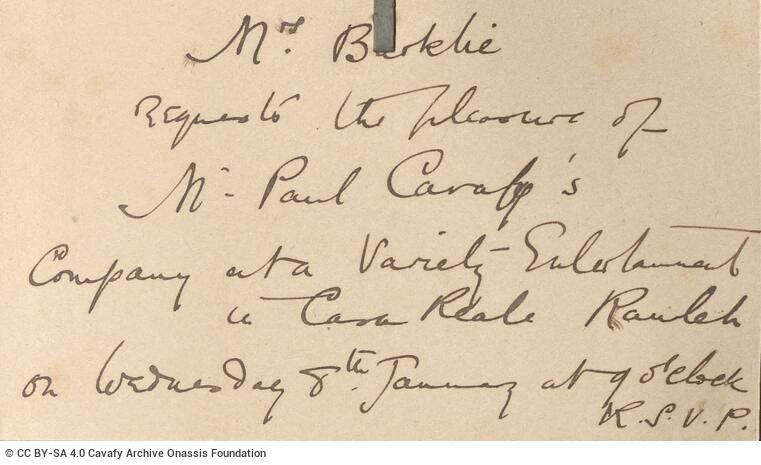 Mrs Barklie
requests the pleasure of
Mr Paul Cavafy's
Company at a Variety Entertainment
in Casa Reale Ramleh
on Wednesday 8th January at 9 o'clock
R.S.V.P.
© CC BY-SA 4.0 Cavafy Archive Onassis Foundation